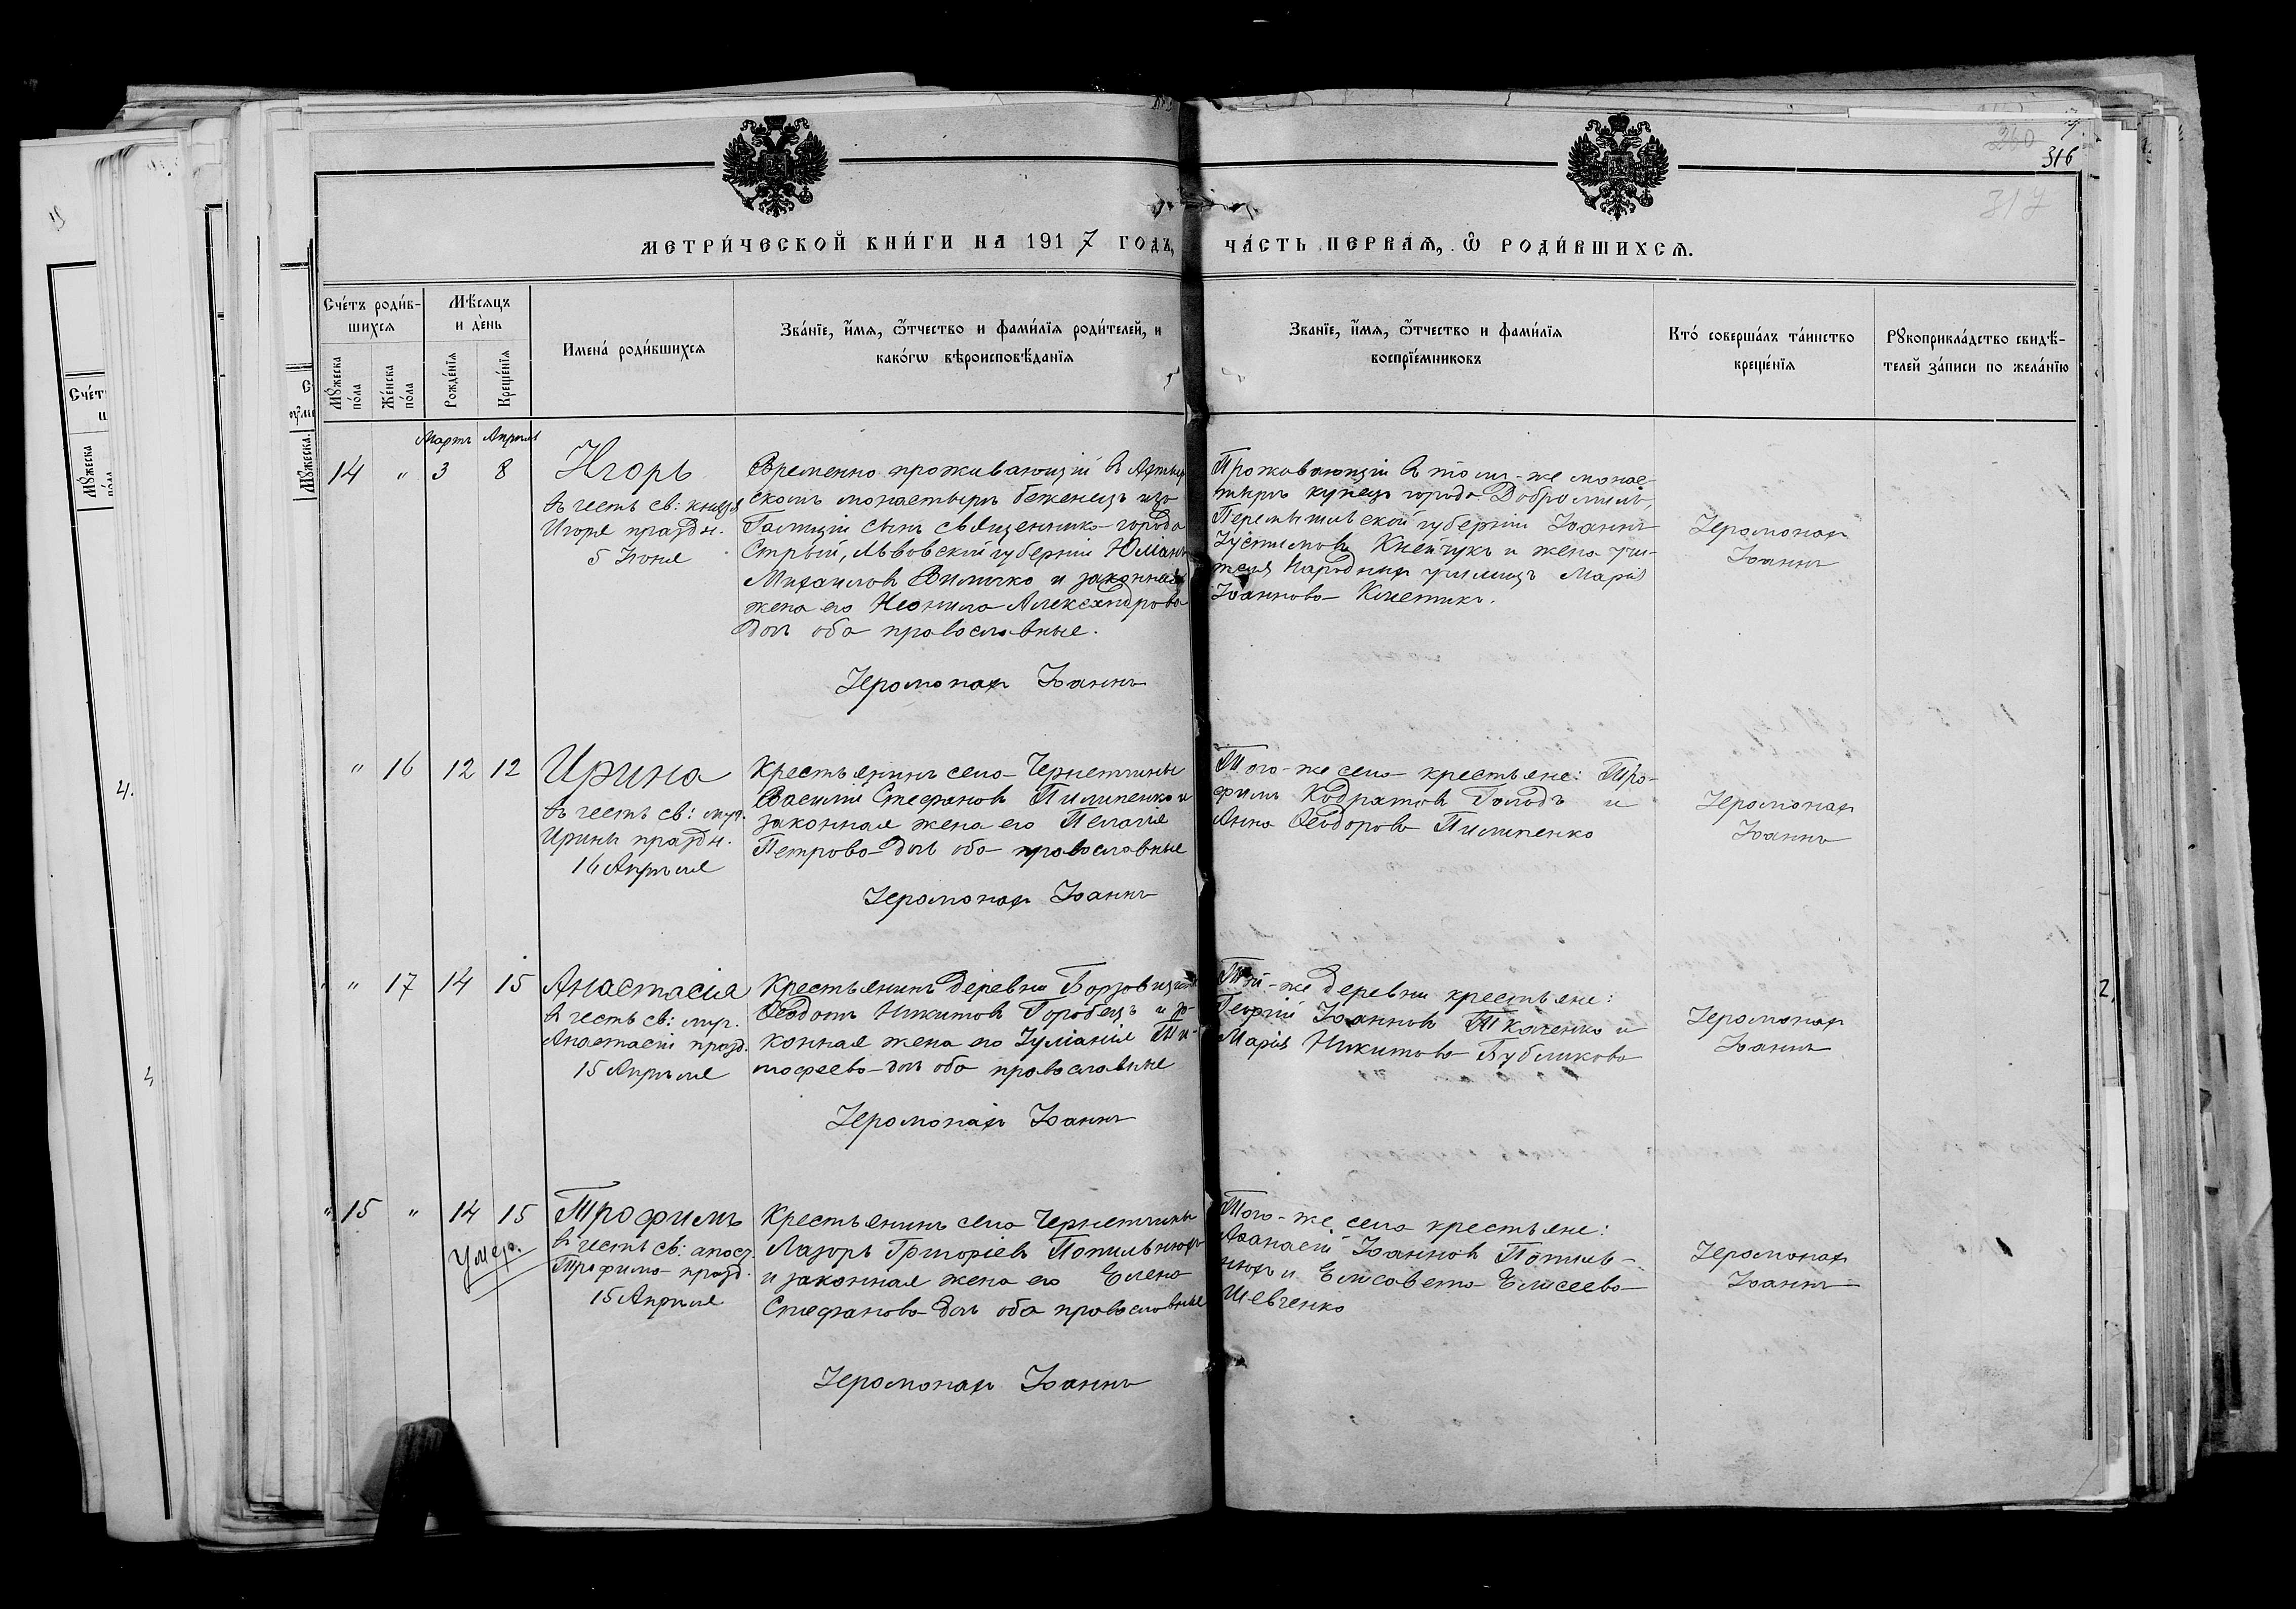 316
317
МЕТРИ́ЧЕСКОЙ КНИ́ГИ НА 1917 ГОДЪ,
ЧА́СТЬ ПЕРВАѦ, Ѡ҆ РОДИ́ВШИХСѦ.
Сче́тъ роди́в-
шихсѧ
Мꙋ́жеска
по́ла
Же́нска
по́ла
Мѣ́сѧцъ
и де́нь
Рожде́нїѧ
Креще́нїѧ
Имена́ роди́вшихсѧ
Зва́нїе, и҆́мѧ, ѻ҆́тчество и фами́лїѧ роди́телей, и
како́гѡ вѣроисповѣ́данїѧ
Зва́нїе, и҆́мѧ, ѻ҆́тчество и фами́лїѧ
воспрїе́мниковъ
Кто́ соверша́лъ та́инство
креще́нїѧ
Рꙋкоприкла́дство свидѣ́-
телей за́писи по жела́нїю
Мартъ Апрѣль
14 " 3 8 Игорь
въ честь св: князя
Игоря праздн.
5 Іюня
Временно проживающій въ Ахтыр
скомъ монастырѣ беженецъ изъ
Галиціи сынъ священника города
Стрый, Львовской губерніи Юліанъ
Михаиловъ Величко и законная
жена его Неонила Александрова
доч оба православные.
Іеромонах Іоаннъ
Проживающій въ томъ-же монас-
тырѣ купецъ города Добромиль,
Перемышльской губерніи Іоаннъ
Іустиновъ Кнейчукъ и жена учи-
теля Народныхъ училищъ Марія
Іоаннова
Іеромонах
Іоаннъ
" 16 12 12 Ирина
въ честь св: муч.
Ирины праздн.
16 Апрѣля
Крестьянинъ села Чернетчины
Василій Стефановъ Пилипенко и
законная жена его Пелагія
Петрова доч оба православные
Іеромонах Іоаннъ
Того-же села крестьяне: Тро-
фимъ Кодратовъ Голодъ и
Анна Ѳеодорова Пилипенко
Іеромонах
Іоаннъ
" 17 14 15 Анастасія
въ честь св: муч.
Анастасіи празд.
15 Апрѣля
Крестьянинъ деревни
Ѳеодотъ Никитовъ Горобецъ и за-
конная жена его Іуліанія Ти-
мофеева доч оба православные
Іеромонах Іоаннъ
Той-же деревни крестьяне:
Георгій Іоанновъ Ткаченко и
Марія Никитова Бубликова
Іеромонах
Іоаннъ
15 " 14 15 Трофимъ
умер.
въ честь св: апост.
Трофима празд.
15 Апрѣля
Крестьянинъ села Чернетчины
Лазорь Григоріевъ Попильнюхъ
и законная жена его Елена
Стефанова доч оба православные
Іеромонах Іоаннъ
Того-же села крестьяне:
Аѳанасій Іоанновъ Попиль-
нюхъ и Елисавета Елисеева
Шевченко
Іеромонах
Іоаннъ